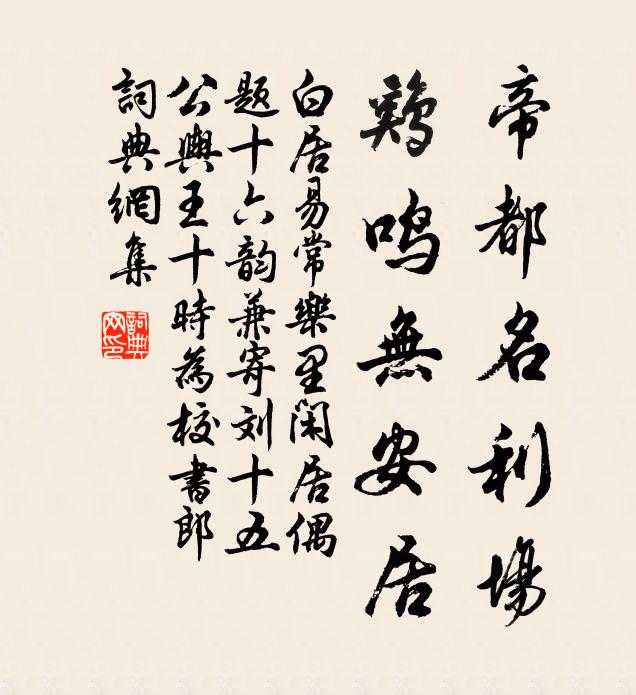 帝都名利場
鷄鳴無安居
白居易常樂里閑居偶
題十六韵兼寄刘十五
公輿王十時為校書郎
詞典網集
詞典
网印